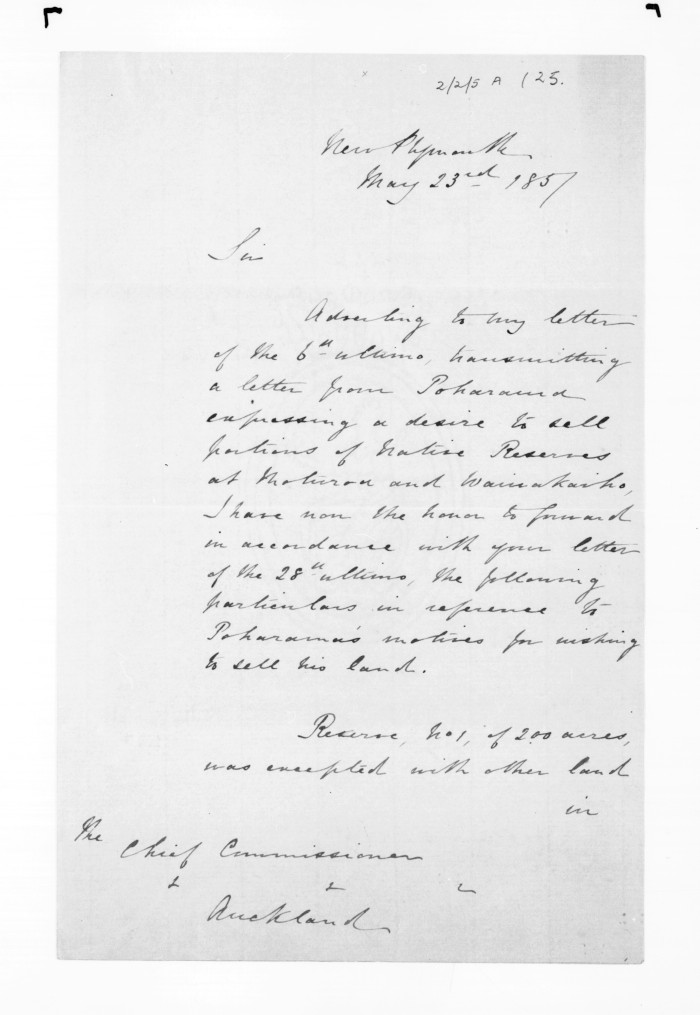 2/2/5 A (25.
New Plymouth
May 23rd 1857
Sir
Adverting to my letter
of the 6th ultimo, transmitting
a letter from Poharama
expressing a desire to sell
portions of Native Reserves
at Moturoa and Waiwakaiho,
I have now the honor to forward
in accordance with your letter
of the 28th ultimo, the following
particulars in reference to
Poharama's motives for wishing
to sell his land.
Reserve, No 1, of 200 acres,
was excepted with other land
in
The
Chief Commissioner
Auckland